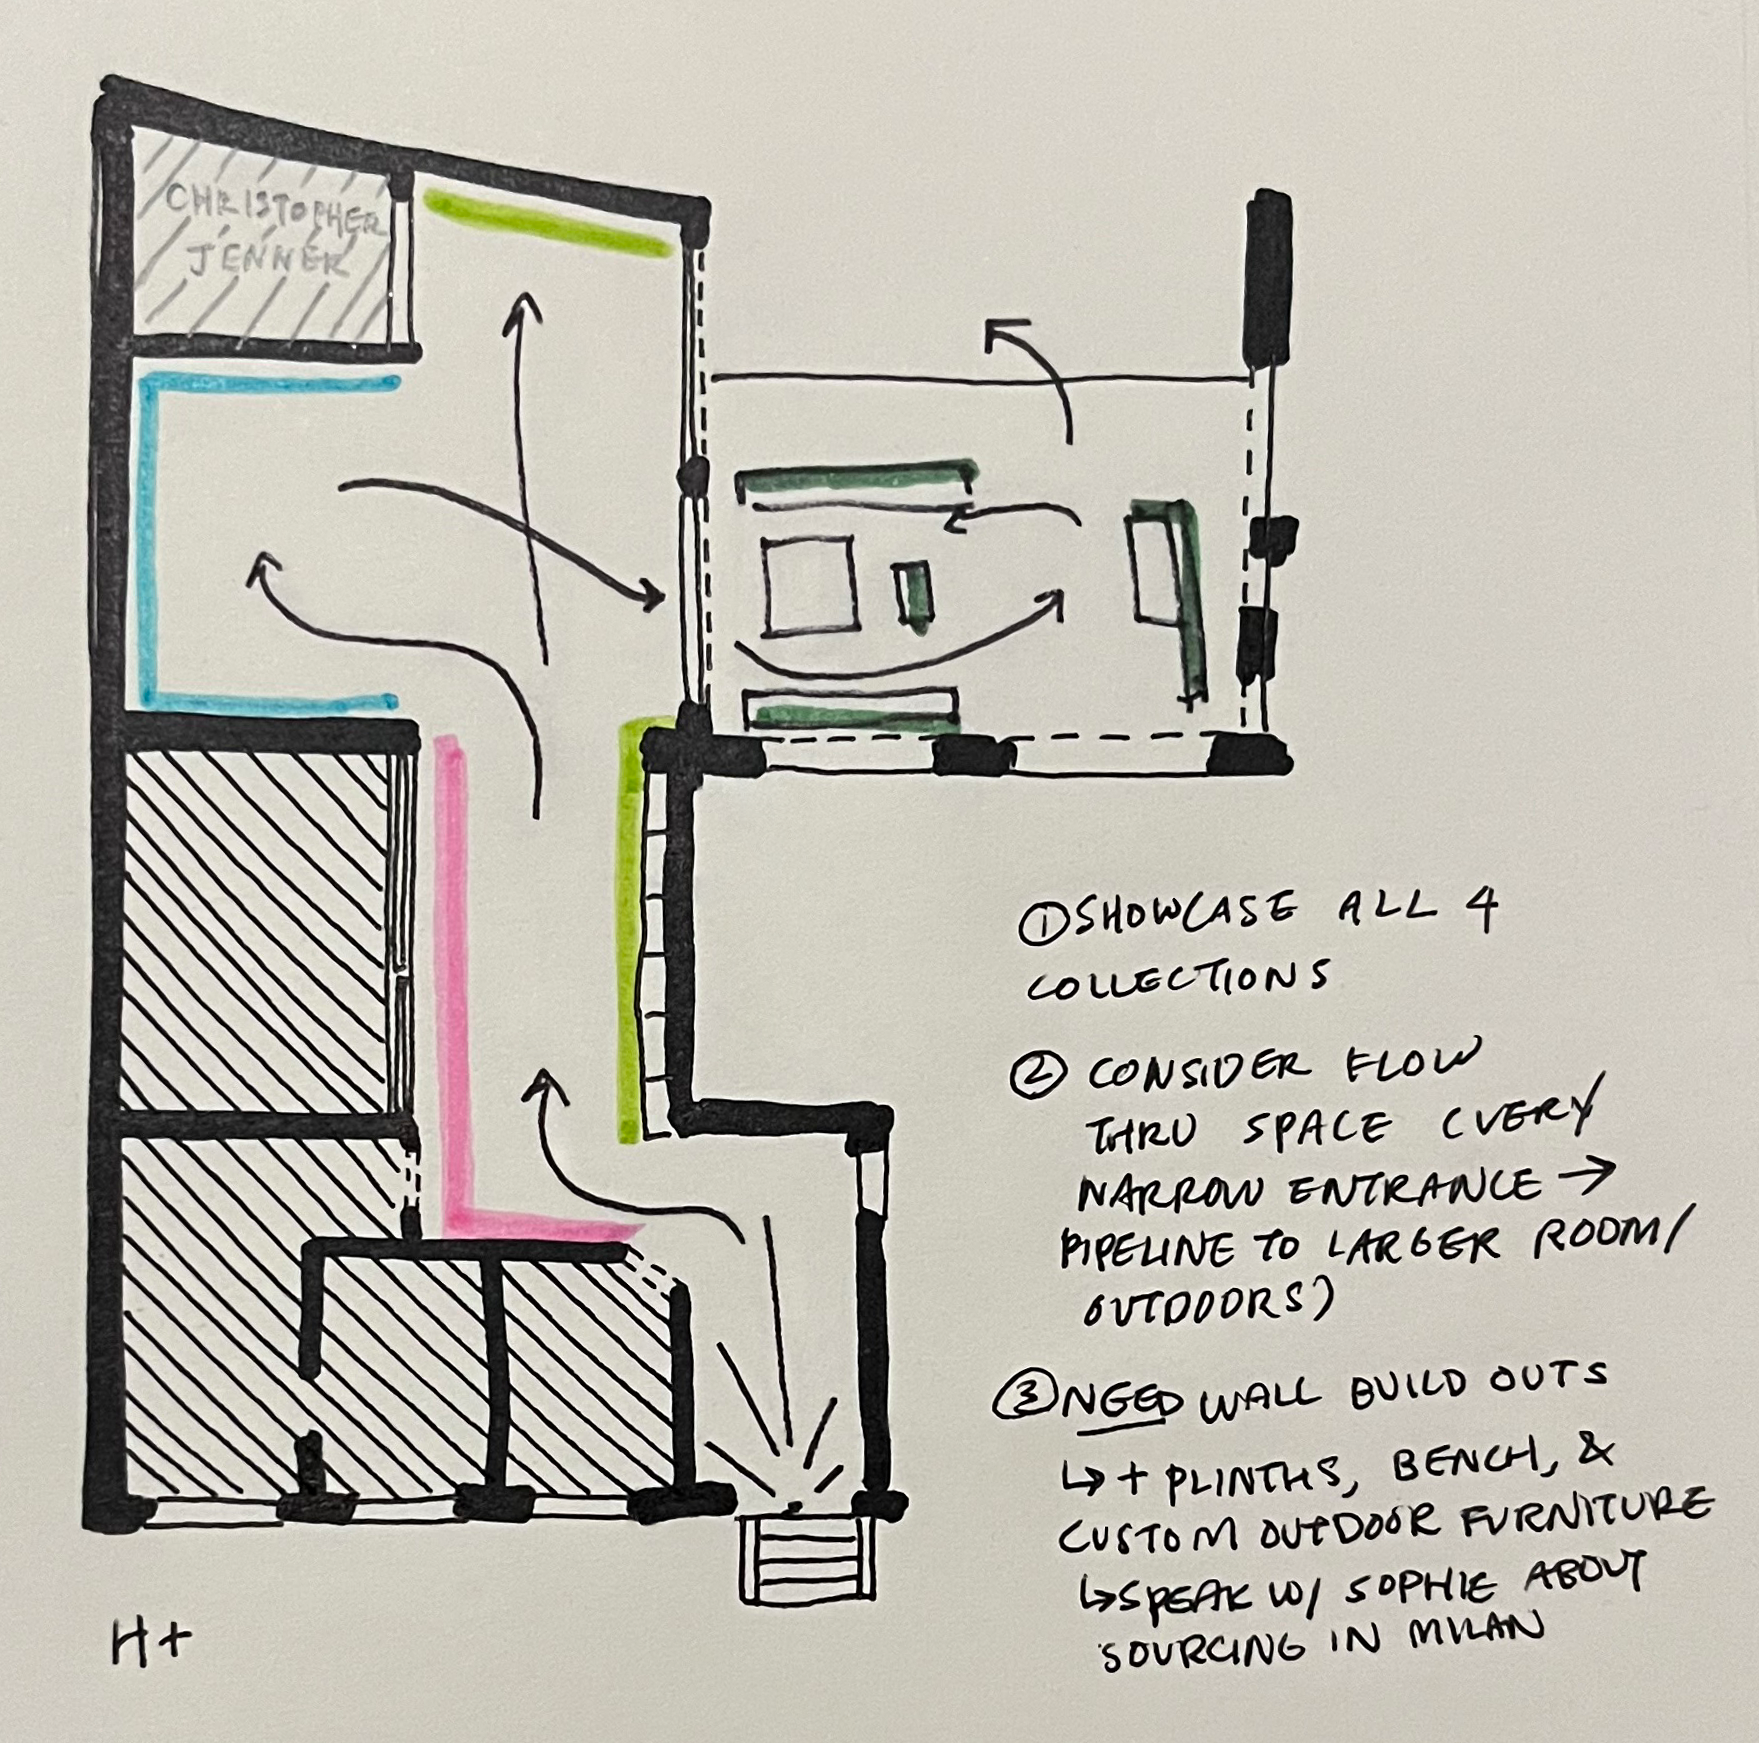 CHRISTOPHER
JENNER
① SHOWCASE ALL 4
COLLECTIONS
② CONSIDER FLOW
THRU SPACE (VERY
NARROW ENTRANCE →
PIPELINE TO LARGER ROOM/
OUTDOORS)
③ NEED WALL BUILD OUTS
↳ + PLINTHS, BENCH, &
CUSTOM OUTDOOR FURNITURE
↳ SPEAK W/ SOPHIE ABOUT
SOURCING IN MILAN
H+